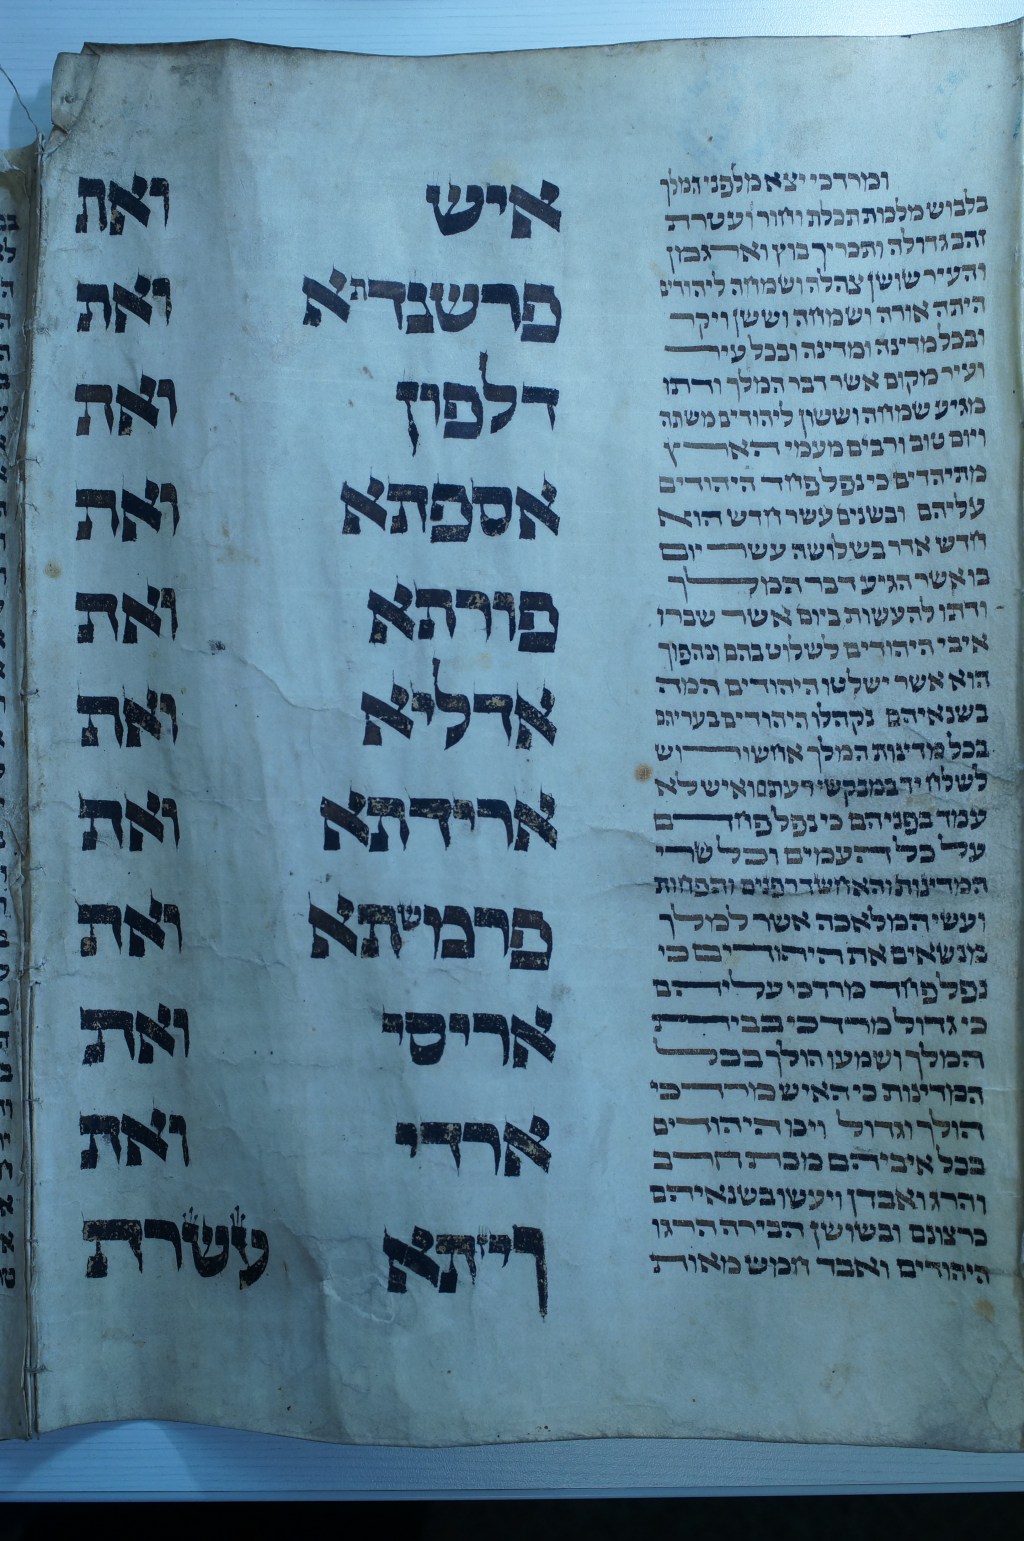 ומרדכי יצא מלפני המלך
בלבוש מלכות תכלת וחור ועטרת
זהב גדולה ותכריך בוץ וארגמן
והעיר שושן צהלה ושמחה ליהודים
היתה אורה ושמחה וששן ויקר
ובכל מדינה ומדינה ובכל עיר
ועיר מקום אשר דבר המלך ודתו
מגיע שמחה וששון ליהודים משתה
ויום טוב ורבים מעמי הארץ
מתיהדים כי נפל פחד היהודים
עליהם ובשנים עשר חדש הוא
חדש אדר בשלושה עשר יום
בו אשר הגיע דבר המלך
ודתו להעשות ביום אשר שברו
איבי היהודים לשלוט בהם ונהפוך
הוא אשר ישלטו היהודים המה
בשנאיהם נקהלו היהודים בעריהם
בכל מדינות המלך אחשורוש
לשלח יד במבקשי רעתם ואיש לא
עמד בפניהם כי נפל פחדם
על כל העמים וכל שרי
המדינות והאחשדרפנים והפחות
ועשי המלאכה אשר למלך
מנשאים את היהודים כי
נפל פחד מרדכי עליהם
כי גדול מרדכי בבית
המלך ושמעו הולך בכל
המדינות כי האיש מרדכי
הולך וגדול ויכו היהודים
בכל איביהם מכת חרב
והרג ואבדן ויעשו בשנאיהם
כרצונם ובשושן הבירה הרגו
היהודים ואבד חמש מאות
איש ואת
פרשנדתא ואת
דלפון ואת
אספתא ואת
פורתא ואת
אדליא ואת
ארידתא ואת
פרמשתא ואת
אריסי ואת
ארדי ואת
ויזתא עשרת